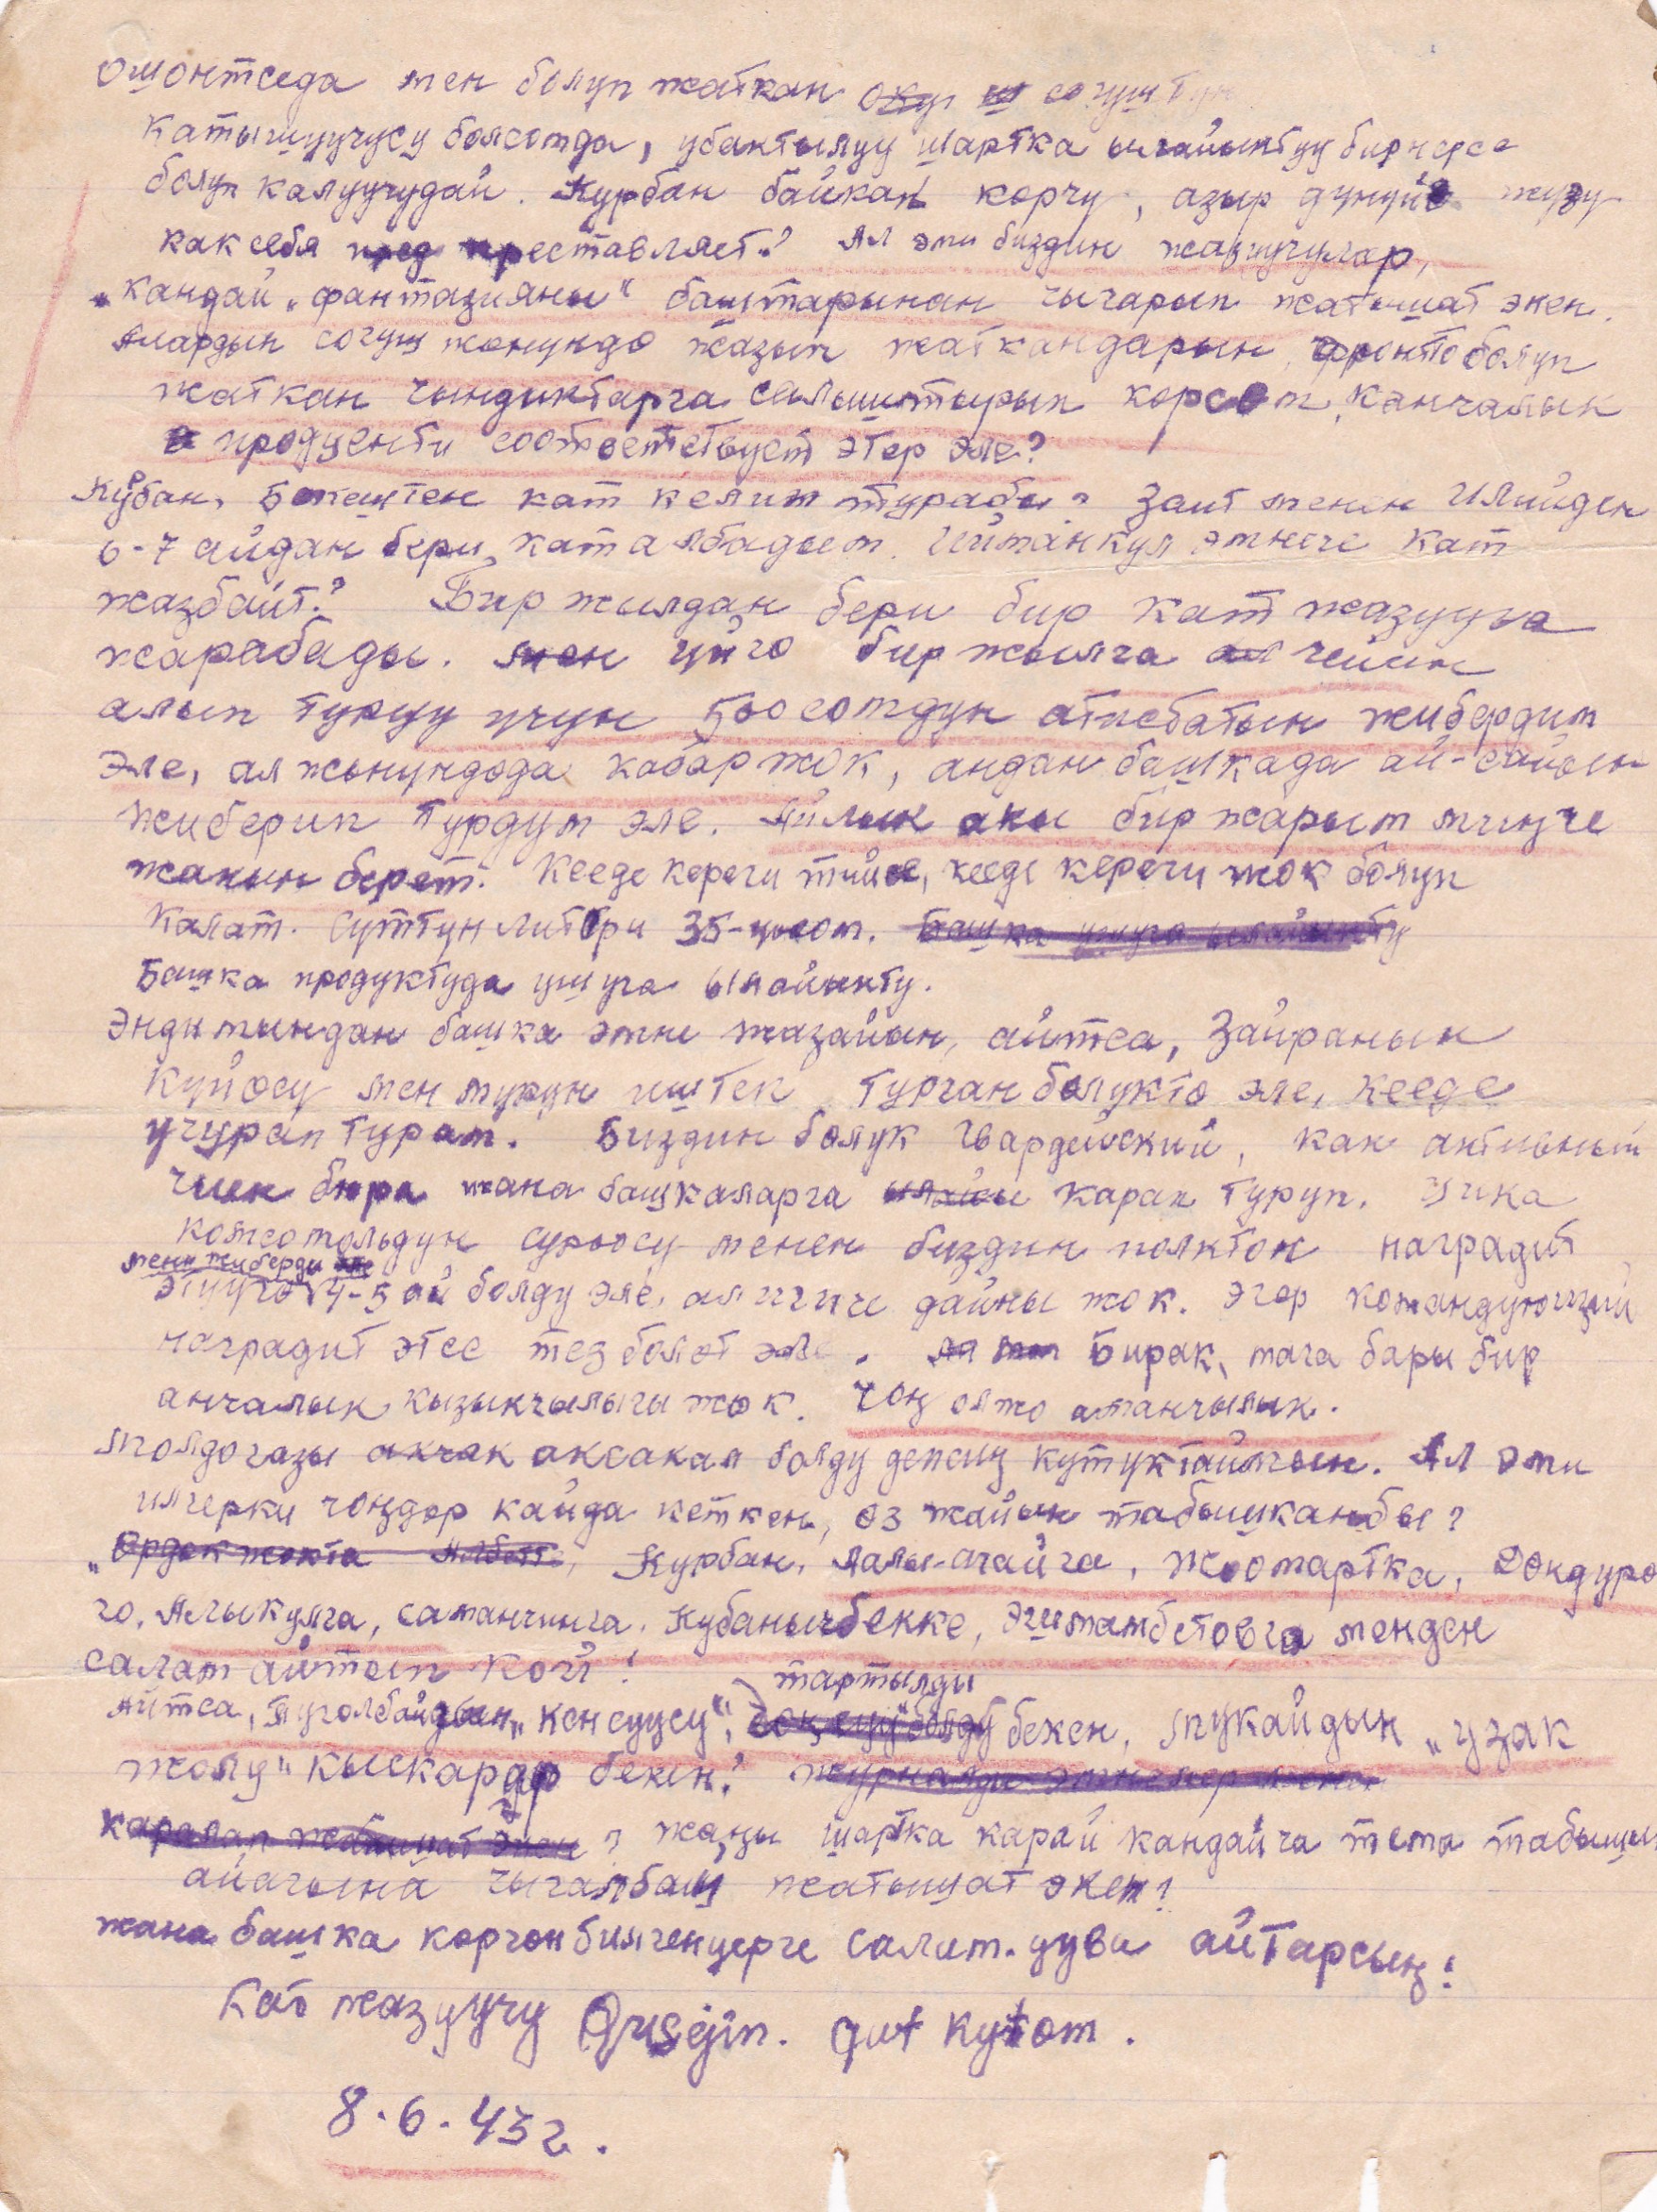 ошонтседа мен болуп жаткан согуштун
катышуучусу болсомда, убактылуу шартка ылайыктуу бирнерсе
болуп калуучудай. Курбан байкап корчу, азыр дунуйө жузу
как себя преставляет? Ал эми биздин жазуучулар,
кандай „фантазияны“ баштарынан чыгарып жатышат экен.
Алардын согуш жонундо жазып жаткандарын, фронтто болуп
жаткан чындыктарга салыштырып корсом, канчалык
проценти соответствует этер эле?
Кубан, Бокештен кат келип турабы? Заит менен Илийден
6-7 айдан бери кат албадым. Ииманкул эмнеге кат
жазбайт? Бир жылдан бери бир кат жазууга
жарабады. Мен уйго бир жылга чейин
алып туруу учун 500 сомдун атисбатын жибердим
эле, ал жонундода кабар жок, андан башкада ай-сайын
жиберип турдум эле. Айлык акы бир жарым минче
жакын берет. Кееде кереги тийсе, кееде кереги жок болуп
калат. Суттун литри 35-сом.
Башка продуктуда ушуга ылайыкту.
Энди мындан башка эмне жазайын, айтса, Зайранын
куйоосу мен мурун иштеп турган болукто эле, кееде
учурап турам. Биздин болук гвардейский, как активный
член бюро жана башкаларга карап туруп. Цика
комсомольдун суроосу менен биздин полктон наградит
этууго мени жиберди 4-5 ай болду эле, ал игиче дайны жок. Эгер командующий
наградит этсе тез болот эле. Бирак, мага бары бир
анчалык кызыкчылыгы жок. Чоң олжо аманчылык.
Молдогазы аксакал болду депсиң кутуктаймын. Ал эми
илгерки чоңдор кайда кеткен, оз жайын табышканбы?
Курбан, Аалы-агайга, Жоомартка, Дондуро
го, Алыкулга, саманчинга, Кубанычбекке, Эшмамбетовго менден
салам айтып кой!
Айтса, Туголбайдын „Кен суусу“, тартылды бекен, Мукайдын „узак
жолу“ кыскарар бекен?
жаңы шартка карай кандайча тема табышып
аягына чыгалбай жатышат экен?
жана башка коргон билгендерге салам. дуба айтарсың!
Кат жазуучу Qusejin. qut kytөm.
8.6.43 г.